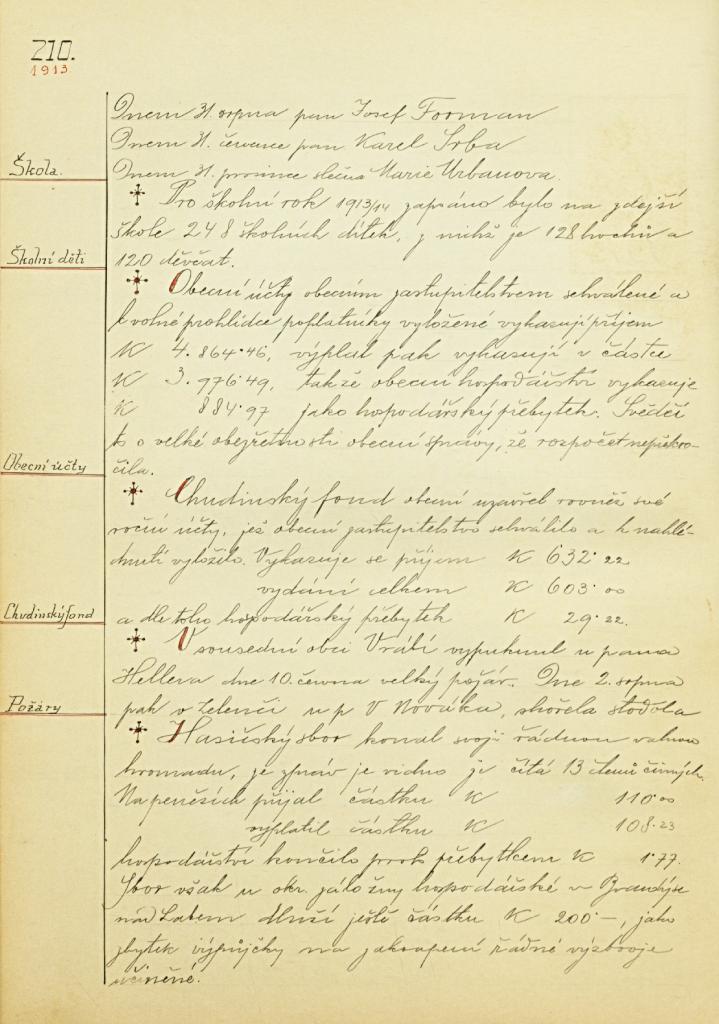 210.
1913.
Dnem 31. srpna pan Josef Forman
Dnem 31. července pan Karel Srba
Škola.
Dnem 31. prosince slečna Marie Urbanova.
Pro školní rok 1913/14 zapsáno bylo na zdejší
škole 248 školních dítek, z nichž je 128 hochů a
Školní děti
120 děvčat.
Obecní účty obecním zastupitelstvem schválené a
k volné prohlídce poplatníky vyložené vykazují příjem
K 4.864·46, výplat pak vykazují v částce
K 3.976·49, takže obecní hospodářství vykazuje
K 884·97 jako hospodářský přebytek. Svědčí
to o velké obezřetnosti obecní správy, že rozpočet nepřekro-
Obecní účty
čila.
Chudinský fond obecní uzavřel rovněž své
roční účty, jež obecní zastupitelstvo schválilo a k nahlé-
dnutí vyložilo. Vykazuje se příjem K 632·22
vydání celkem K 603·00
Chudinský fond
a dle toho hospodářský přebytek K 29·22.
V sousední obci Vrábí vypuknul u pana
Hellera dne 10. června velký požár. Dne 2. srpna
Požáry
pak v Zelenči u p. V. Nováka, shořela stodola
Hasičský sbor konal svoji řádnou valnou
hromadu, ze zpráv je vidno že čítá 13 členů činných.
Na penězích přijal částku K 110·00
vyplatil částku K 108·23
hospodářství končilo přebytkem K 1·77.
Sbor však u okr. záložny hospodářské v Brandýse
nad Labem dluží ještě částku K 200·–, jako
zbytek výpůjčky na zakoupení řádné výzbroje
učiněné.